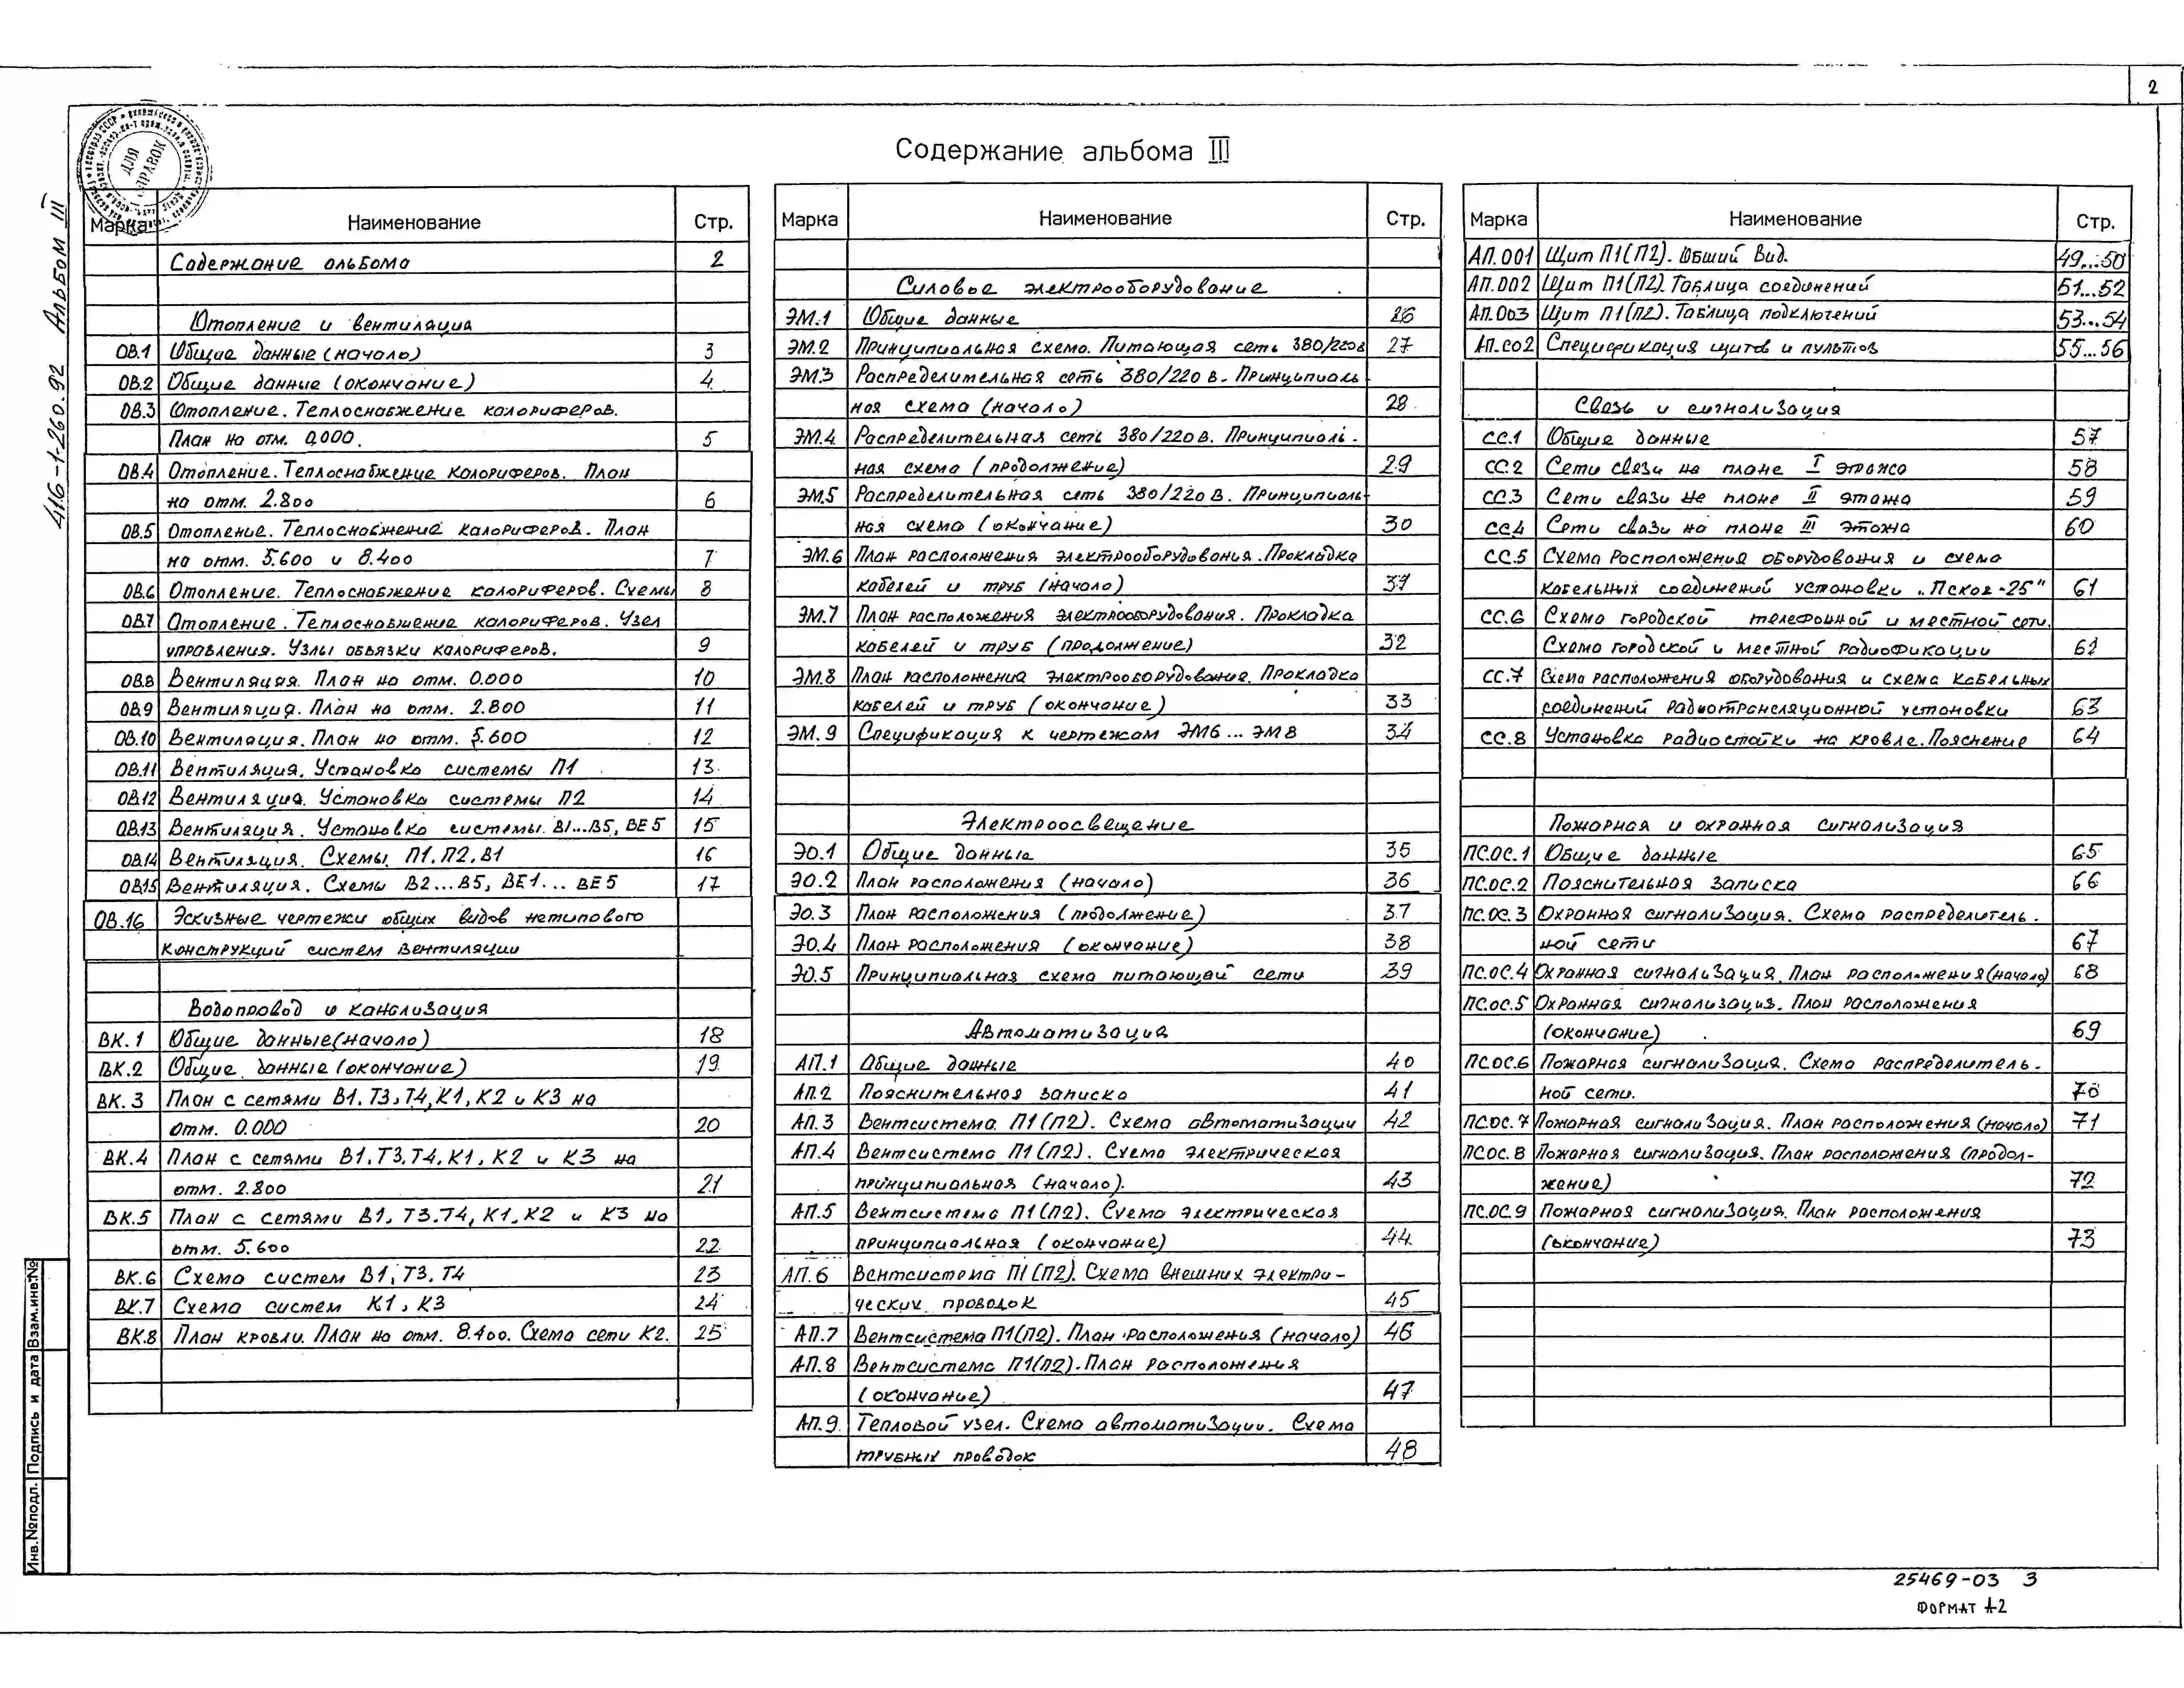 2
Содержание альбома III
ДЛЯ СПРАВОК
416-1-260.92 Альбом III
Марка Наименование Стр.
Содержание альбома 2
Отопление и вентиляция
ОВ.1 Общие данные (начало) 3
ОВ.2 Общие данные (окончание) 4
ОВ.3 Отопление. Теплоснабжение калориферов.
План на отм. 0,000. 5
ОВ.4 Отопление. Теплоснабжение калориферов. План
на отм. 2.800 6
ОВ.5 Отопление. Теплоснабжение калориферов. План
на отм. 5.600 и 8.400 7
ОВ.6 Отопление. Теплоснабжение калориферов. Схемы 8
ОВ.7 Отопление. Теплоснабжение калориферов. Узел
управления. Узлы обвязки калориферов. 9
ОВ.8 Вентиляция. План на отм. 0.000 10
ОВ.9 Вентиляция. План на отм. 2.800 11
ОВ.10 Вентиляция. План на отм. 5.600 12
ОВ.11 Вентиляция. Установка системы П1 13
ОВ.12 Вентиляция. Установка системы П2 14
ОВ.13 Вентиляция. Установка системы В1...В5, ВЕ5 15
ОВ.14 Вентиляция. Схемы П1. П2. В1 16
ОВ.15 Вентиляция. Схемы В2...В5, ВЕ1... ВЕ5 17
ОВ.16 Эскизные чертежи общих видов нетипового
конструкций систем вентиляции
Водопровод и канализация
ВК.1 Общие данные (начало) 18
ВК.2 Общие данные (окончание) 19
ВК.3 План с сетями В1. Т3, Т4, К1, К2 и К3 на
отм. 0.000 20
ВК.4 План с сетями В1. Т3. Т4. К1, К2 и К3 на
отм. 2.800 21
ВК.5 План с сетями В1. Т3. Т4, К1. К2 и К3 на
отм. 5.600 22
ВК.6 Схема систем В1, Т3. Т4 23
ВК.7 Схема систем К1, К3 24
ВК.8 План кровли. План на отм. 8.400. Схема сети К2. 25
Марка Наименование Стр.
Силовое электрооборудование
ЭМ.1 Общие данные 26
ЭМ.2 Принципиальная схема. Питающая сеть 380/220в 27
ЭМ.3 Распределительная сеть 380/220 в. Принципиаль-
ная схема (начало) 28
ЭМ.4 Распределительная сеть 380/220 в. Принципиаль-
ная схема (продолжение) 29
ЭМ.5 Распределительная сеть 380/220 В. Принципиаль-
ная схема (окончание) 30
ЭМ.6 План расположения электрооборудования. Прокладка
кабелей и труб (начало) 31
ЭМ.7 План расположения электрооборудования. Прокладка
кабелей и труб (продолжение) 32
ЭМ.8 План расположения электрооборудование. Прокладка
кабелей и труб (окончание) 33
ЭМ.9 Спецификация к чертежам ЭМ6... ЭМ8 34
Электроосвещение
ЭО.1 Общие данные 35
ЭО.2 План расположения (начало) 36
ЭО.3 План расположения (продолжение) 37
ЭО.4 План расположения (окончание) 38
ЭО.5 Принципиальная схема питающей сети 39
Автоматизация
АП.1 Общие данные 40
АП.2 Пояснительная записка 41
АП.3 Вентсистема П1(П2). Схема автоматизации 42
АП.4 Вентсистема П1(П2). Схема электрическая
принципиальная (начало). 43
АП.5 Вентсистема П1(П2). Схема электрическая
принципиальная (окончание) 44
АП.6 Вентсистема П1(П2). Схема внешних электри-
ческих проводок 45
АП.7 Вентсистема П1(П2). План расположения (начало) 46
АП.8 Вентсистема П1(П2). План расположения
(окончание) 47
АП.9 Тепловой узел. Схема автоматизации. Схема
трубных проводок 48
Марка Наименование Стр.
АП.001 Щит П1(П2). Общий вид. 49...50
АП.002 Щит П1(П2). Таблица соединений 51...52
АП.003 Щит П1(П2). Таблица подключений 53...54
АП.СО2 Спецификация щитов и пультов 55...56
Связь и сигнализация
СС.1 Общие данные 57
СС.2 Сети связи на плане I этажа 58
СС.3 Сети связи не плане II этажа 59
СС.4 Сети связи на плане III этажа 60
СС.5 Схема расположения оборудования и схема
кабельных соединений установки „Псков-25" 61
СС.6 Схема городской телефонной и местной сети.
Схема городской и местной радиофикации 62
СС.7 Схема расположения оборудования и схема кабельных
соединений радиотрансляционной установки 63
СС.8 Установка радиостойки на кровле. Пояснение 64
Пожарная и охранная сигнализация
ПС.ОС.1 Общие данные 65
ПС.ОС.2 Пояснительная записка 66
ПС.ОС.3 Охранная сигнализация. Схема распределитель-
ной сети 67
ПС.ОС.4 Охранная сигнализация. План расположения (начало) 68
ПС.ОС.5 Охранная сигнализация. План расположения
(окончание) 69
ПС.ОС.6 Пожарная сигнализация. Схема распределитель-
ной сети. 70
ПС.ОС.7 Пожарная сигнализация. План расположения (начало) 71
ПС.ОС.8 Пожарная сигнализация. План расположения (продол-
жение) 72
ПС.ОС.9 Пожарная сигнализация. План расположения
(окончание) 73
Инв.№подл. Подпись и дата Взам.инв.№
25469-03 3
Формат А-2